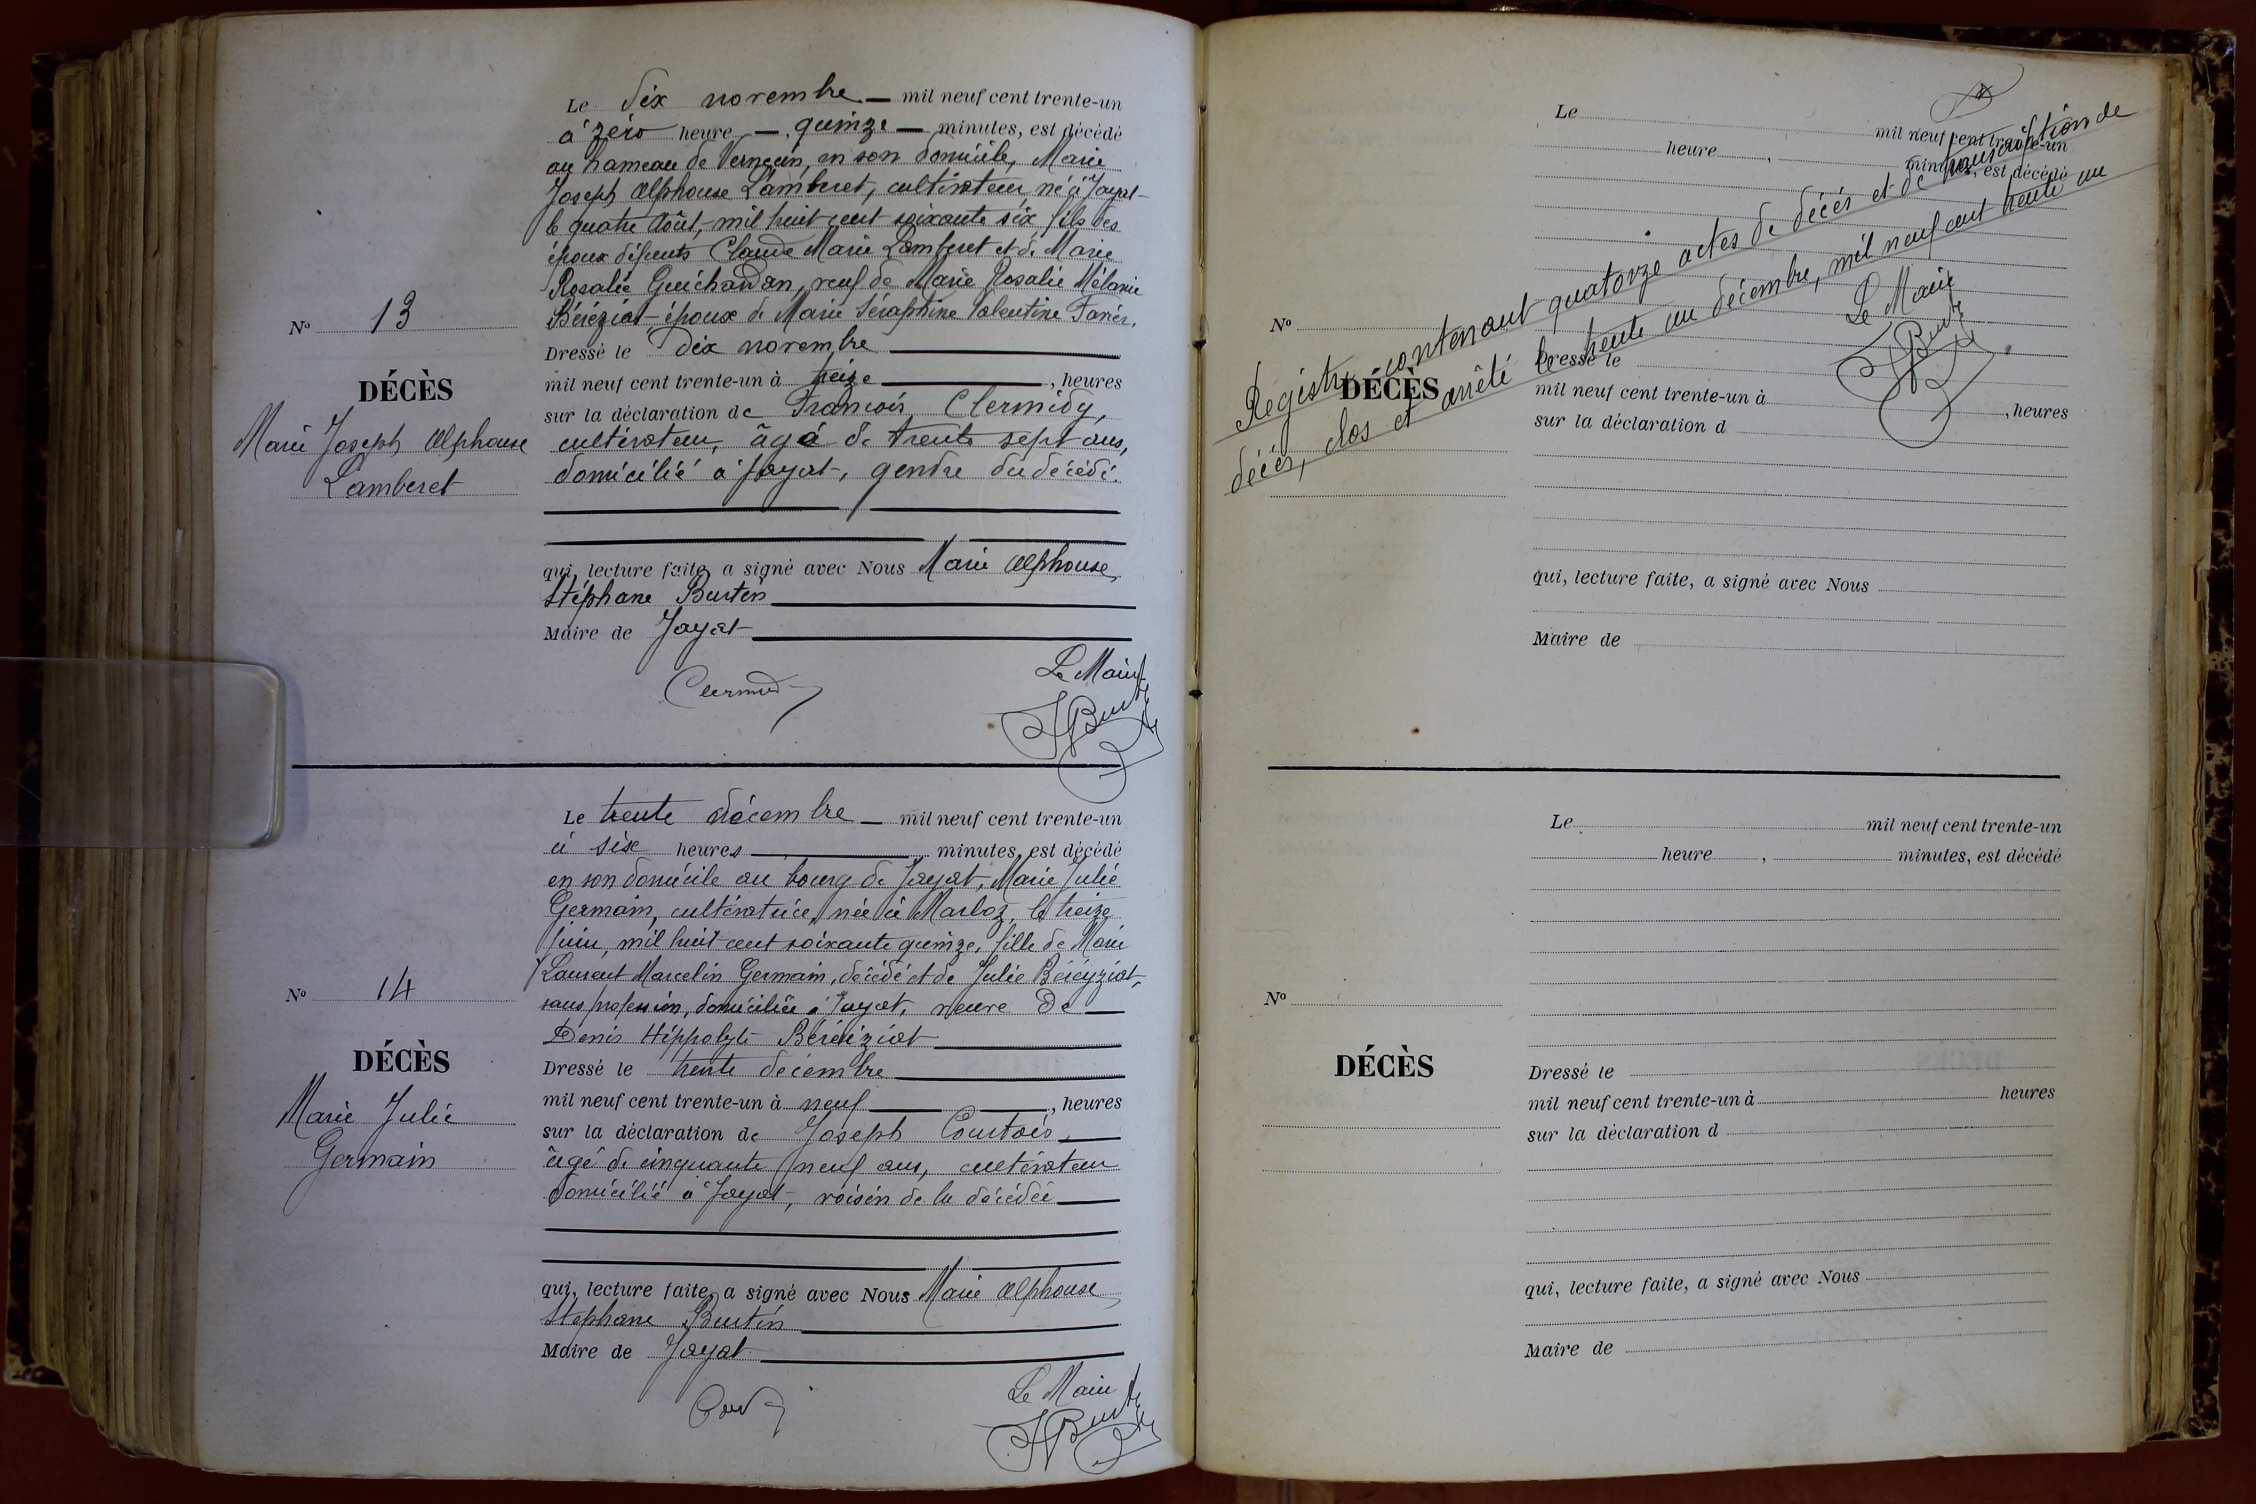 Le dix novembre mil neuf cent trente-un
à zéro heure quinze minutes, est décédé
au hameau de en son domicile, Marie
Joseph Alphonse Lamberet, cultivateur, né à Jayat
le quatre Août, mil huit cent soixante six fils des
époux défunts Claude Marie Lamberet et de Marie
Rosalie Guichardan, veuf de Marie Rosalie Mélanie
Béréziat époux de Marie Séraphine Valentine
Dressé le dix novembre
mil neuf cent trente-un à treize, heures
sur la déclaration de François Clermidy,
cultivateur, âgé de trente sept ans,
domicilié à Jayat, gendre du décédé.
qui, lecture faite, a signé avec Nous Marie Alphonse
Stéphane Burtin
Maire de Jayat
Le Maire
Nº 13
DÉCÈS
Marie Joseph Alphonse
Lamberet
Le trente décembre mil neuf cent trente-un
à six heures minutes, est décédé
en son domicile au bourg de Jayat, Marie Julie
Germain, cultivatrice, née à Marboz, le treize
Juin, mil huit cent soixante quinze, fille de Marie
Laurent Marcelin Germain, décédé et de Julie Béréyziat,
sans profession, domiciliée à Jayat, veuve de
Denis Hippolyte Béréziat
Dressé le trente décembre
mil neuf cent trente-un à neuf, heures
sur la déclaration de Joseph Courtois,
âgé de cinquante neuf ans, cultivateur
domicilié à Jayat, voisin de la décédée
qui, lecture faite, a signé avec Nous Marie Alphonse
Stéphane Burtin
Maire de Jayat
Le Maire
Nº 14
DÉCÈS
Marie Julie
Germain
Le mil neuf cent trente-un
heure, minutes, est décédé
Registre contenant quatorze actes de décès et de transcription de
décès, clos et arrêté le trente un décembre, mil neuf cent trente un
Le Maire
Nº
DÉCÈS
Dressé le
mil neuf cent trente-un à, heures
sur la déclaration d
qui, lecture faite, a signé avec Nous
Maire de
Le mil neuf cent trente-un
heure, minutes, est décédé
Nº
DÉCÈS
Dressé le
mil neuf cent trente-un à heures
sur la déclaration d
qui, lecture faite, a signé avec Nous
Maire de